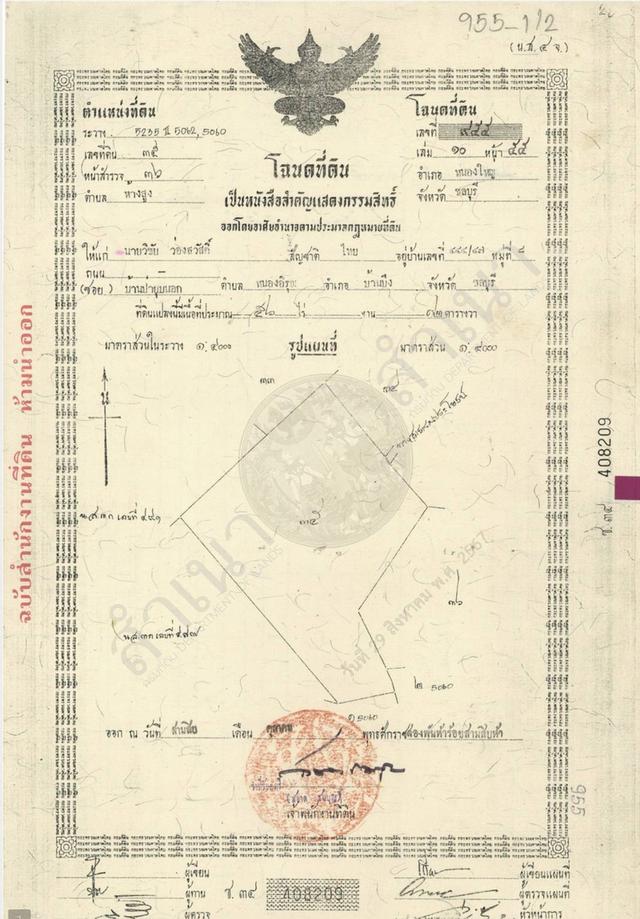 955-1/2
(น.ส.๔ จ.)
ตำแหน่งที่ดิน
ระวาง 5235 II 5062, 5060
เลขที่ดิน ๓๕
หน้าสำรวจ ๓๖
ตำบล ห้างสูง
โฉนดที่ดิน
เลขที่ ๙๕๕
เล่ม ๑๐ หน้า ๕๕
อำเภอ หนองใหญ่
จังหวัด ชลบุรี
โฉนดที่ดิน
เป็นหนังสือสำคัญแสดงกรรมสิทธิ์
ออกโดยอาศัยอำนาจตามประมวลกฎหมายที่ดิน
ให้แก่ นายวิชัย ว่องสวัสดิ์ สัญชาติ ไทย อยู่บ้านเลขที่ หมู่ที่ ๘
ถนน
(ซอย) บ้านป่ายุบนอก ตำบล หนองอิรุณ อำเภอ บ้านบึง จังหวัด ชลบุรี
ที่ดินแปลงนี้มีเนื้อที่ประมาณ ๕๖ ไร่ - งาน ๗๒ ตารางวา
มาตราส่วนในระวาง ๑:๔๐๐๐ รูปแผนที่ มาตราส่วน ๑:๔๐๐๐
น
๓๓
๓๔
น.ส.๓ก เลขที่ ๔๙๑
๓๕
๓๖
น.ส.๓ก เลขที่ ๔๙๗
๒ 5060
๑ 5060
สำเนา
วันที่ 29 สิงหาคม พ.ศ. 2567
ออก ณ วันที่ สามสิบ เดือน ตุลาคม พุทธศักราช สองพันห้าร้อยสามสิบห้า
เจ้าพนักงานที่ดิน
ผู้เขียน
ผู้ทาน
ผู้ตรวจ
ช.๓๔ 408209
ผู้เขียนแผนที่
ผู้ตรวจแผนที่
หัวหน้าการ
ฉบับสำนักงานที่ดิน ห้ามนำออก
ช.๓๔ 408209
955